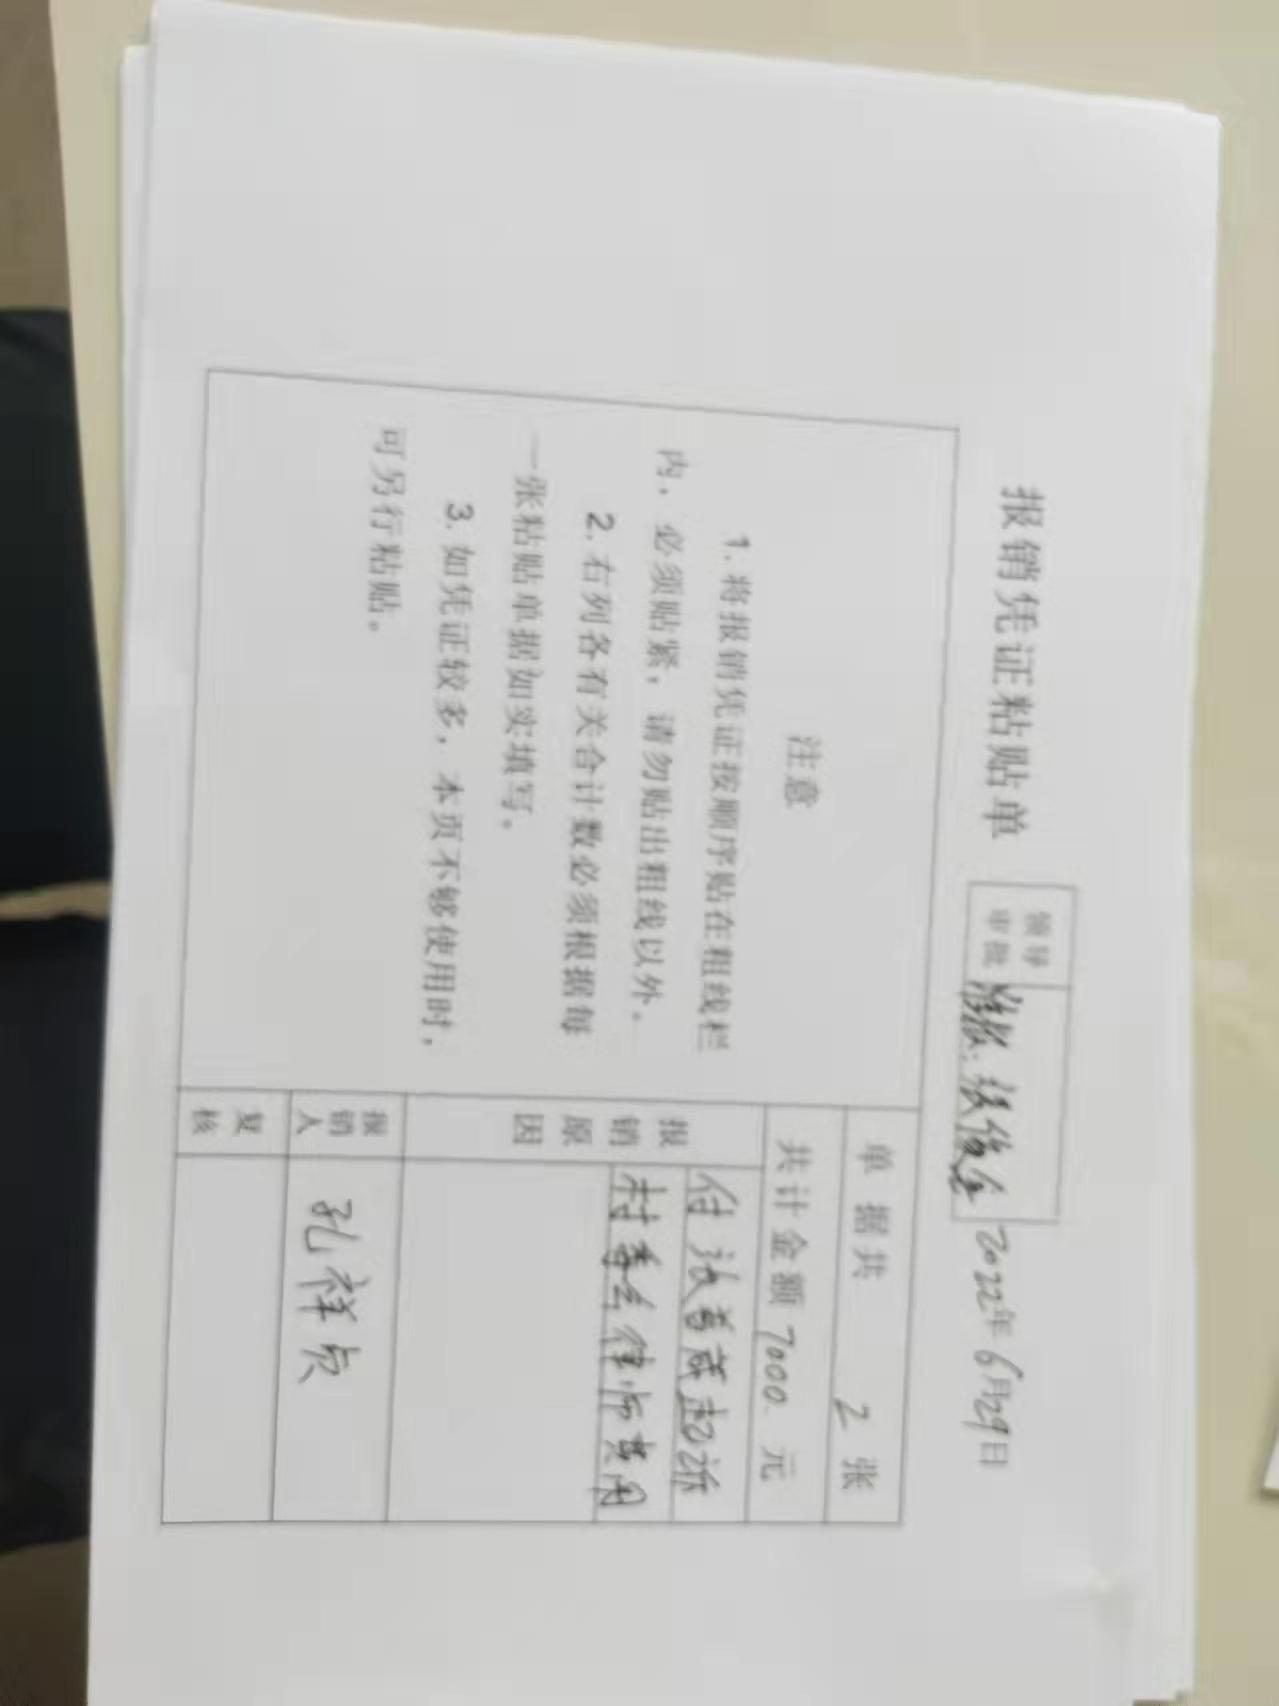 报销凭证粘贴单
领导
审批
准报.
2022年6月29日
注意
1. 将报销凭证按顺序贴在粗线栏
内，必须贴紧，请勿贴出粗线以外。
2. 右列各有关合计数必须根据每
一张粘贴单据如实填写。
3. 如凭证较多，本页不够使用时，
可另行粘贴。
单据共 2 张
共计金额 7000 元
报销原因
付 起诉
村委会律师费用
报销人
孔祥贞
复核